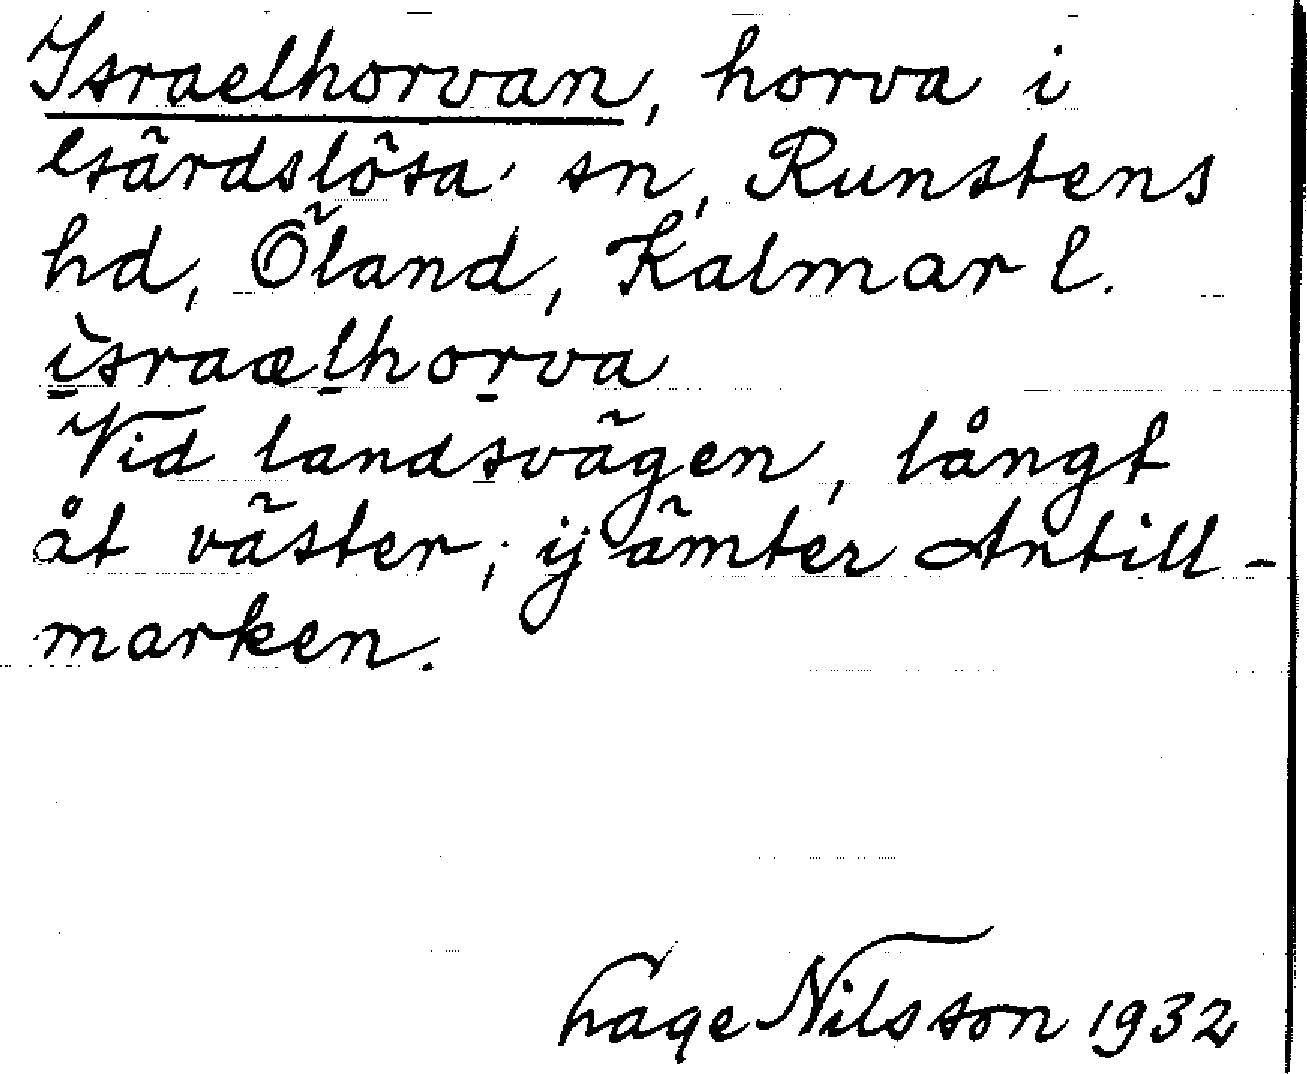 Israelhorvan, horva i
Gärdslösa sn, Runstens
hd, Öland, Kalmar l.
israælhorva
Vid landsvägen, långt
åt väster, jämter Antill-
marken.
Hage Nilsson 1932